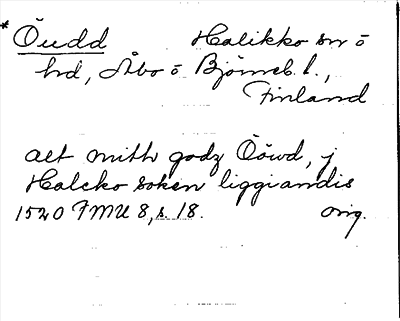 * Öudd Halikko sn ö
hd, Åbo ö Björneb. l.,
Finland
alt mith godz Öówd, j
Halcko soken liggiandis
1520 FMU 8, s. 18. orig.